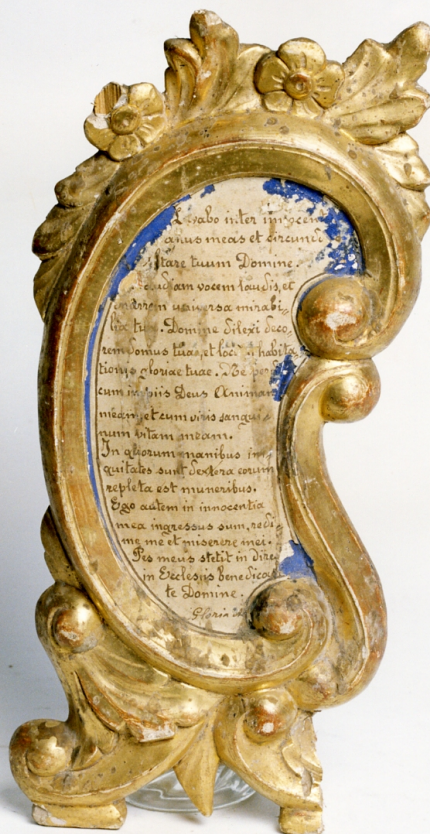 Lavabo inter innocen
anus meas et circumd
ltare tuum Domine.
audiam vocem laudis, et
enarrem universa mirabi-
lia tua. Domine dilexi deco-
rem domus tuae, et locum habita-
tionis gloriae tuae. Ne perd
cum impiis Deus Animam
meam, et cum viris sangui-
num vitam meam.
In quorum manibus ini
quitates sunt dextera eorum
repleta est muneribus.
Ego autem in innocentia
mea ingressus sum, redi-
me me et miserere mei.
Pes meus stetit in dire
in Ecclesiis benedica
te Domine.
Gloria